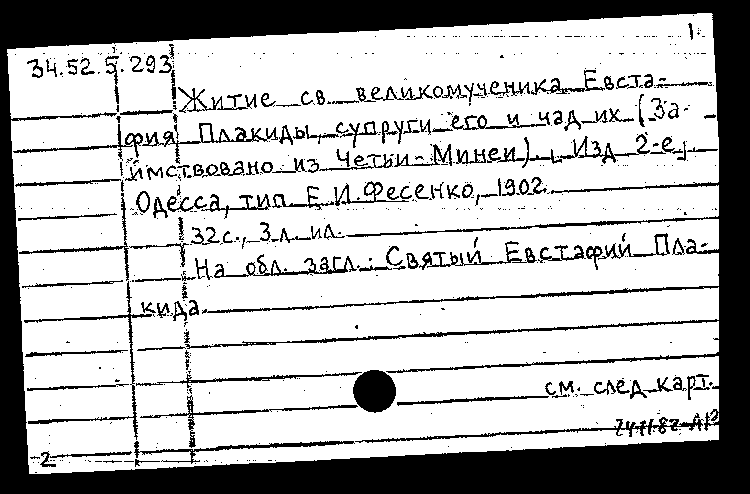 1.
34.52.5.293
Житие св. великомученика Евста-
фия Плакиды, супруги его и чад их (За-
имствовано из Четьи-Минеи). Изд 2-е
Одесса, тип. Е.И.Фесенко, 1902
32с., 3л. ил.
На обл. загл.: Святый Евстафий Пла-
кида.
см. след карт.
2